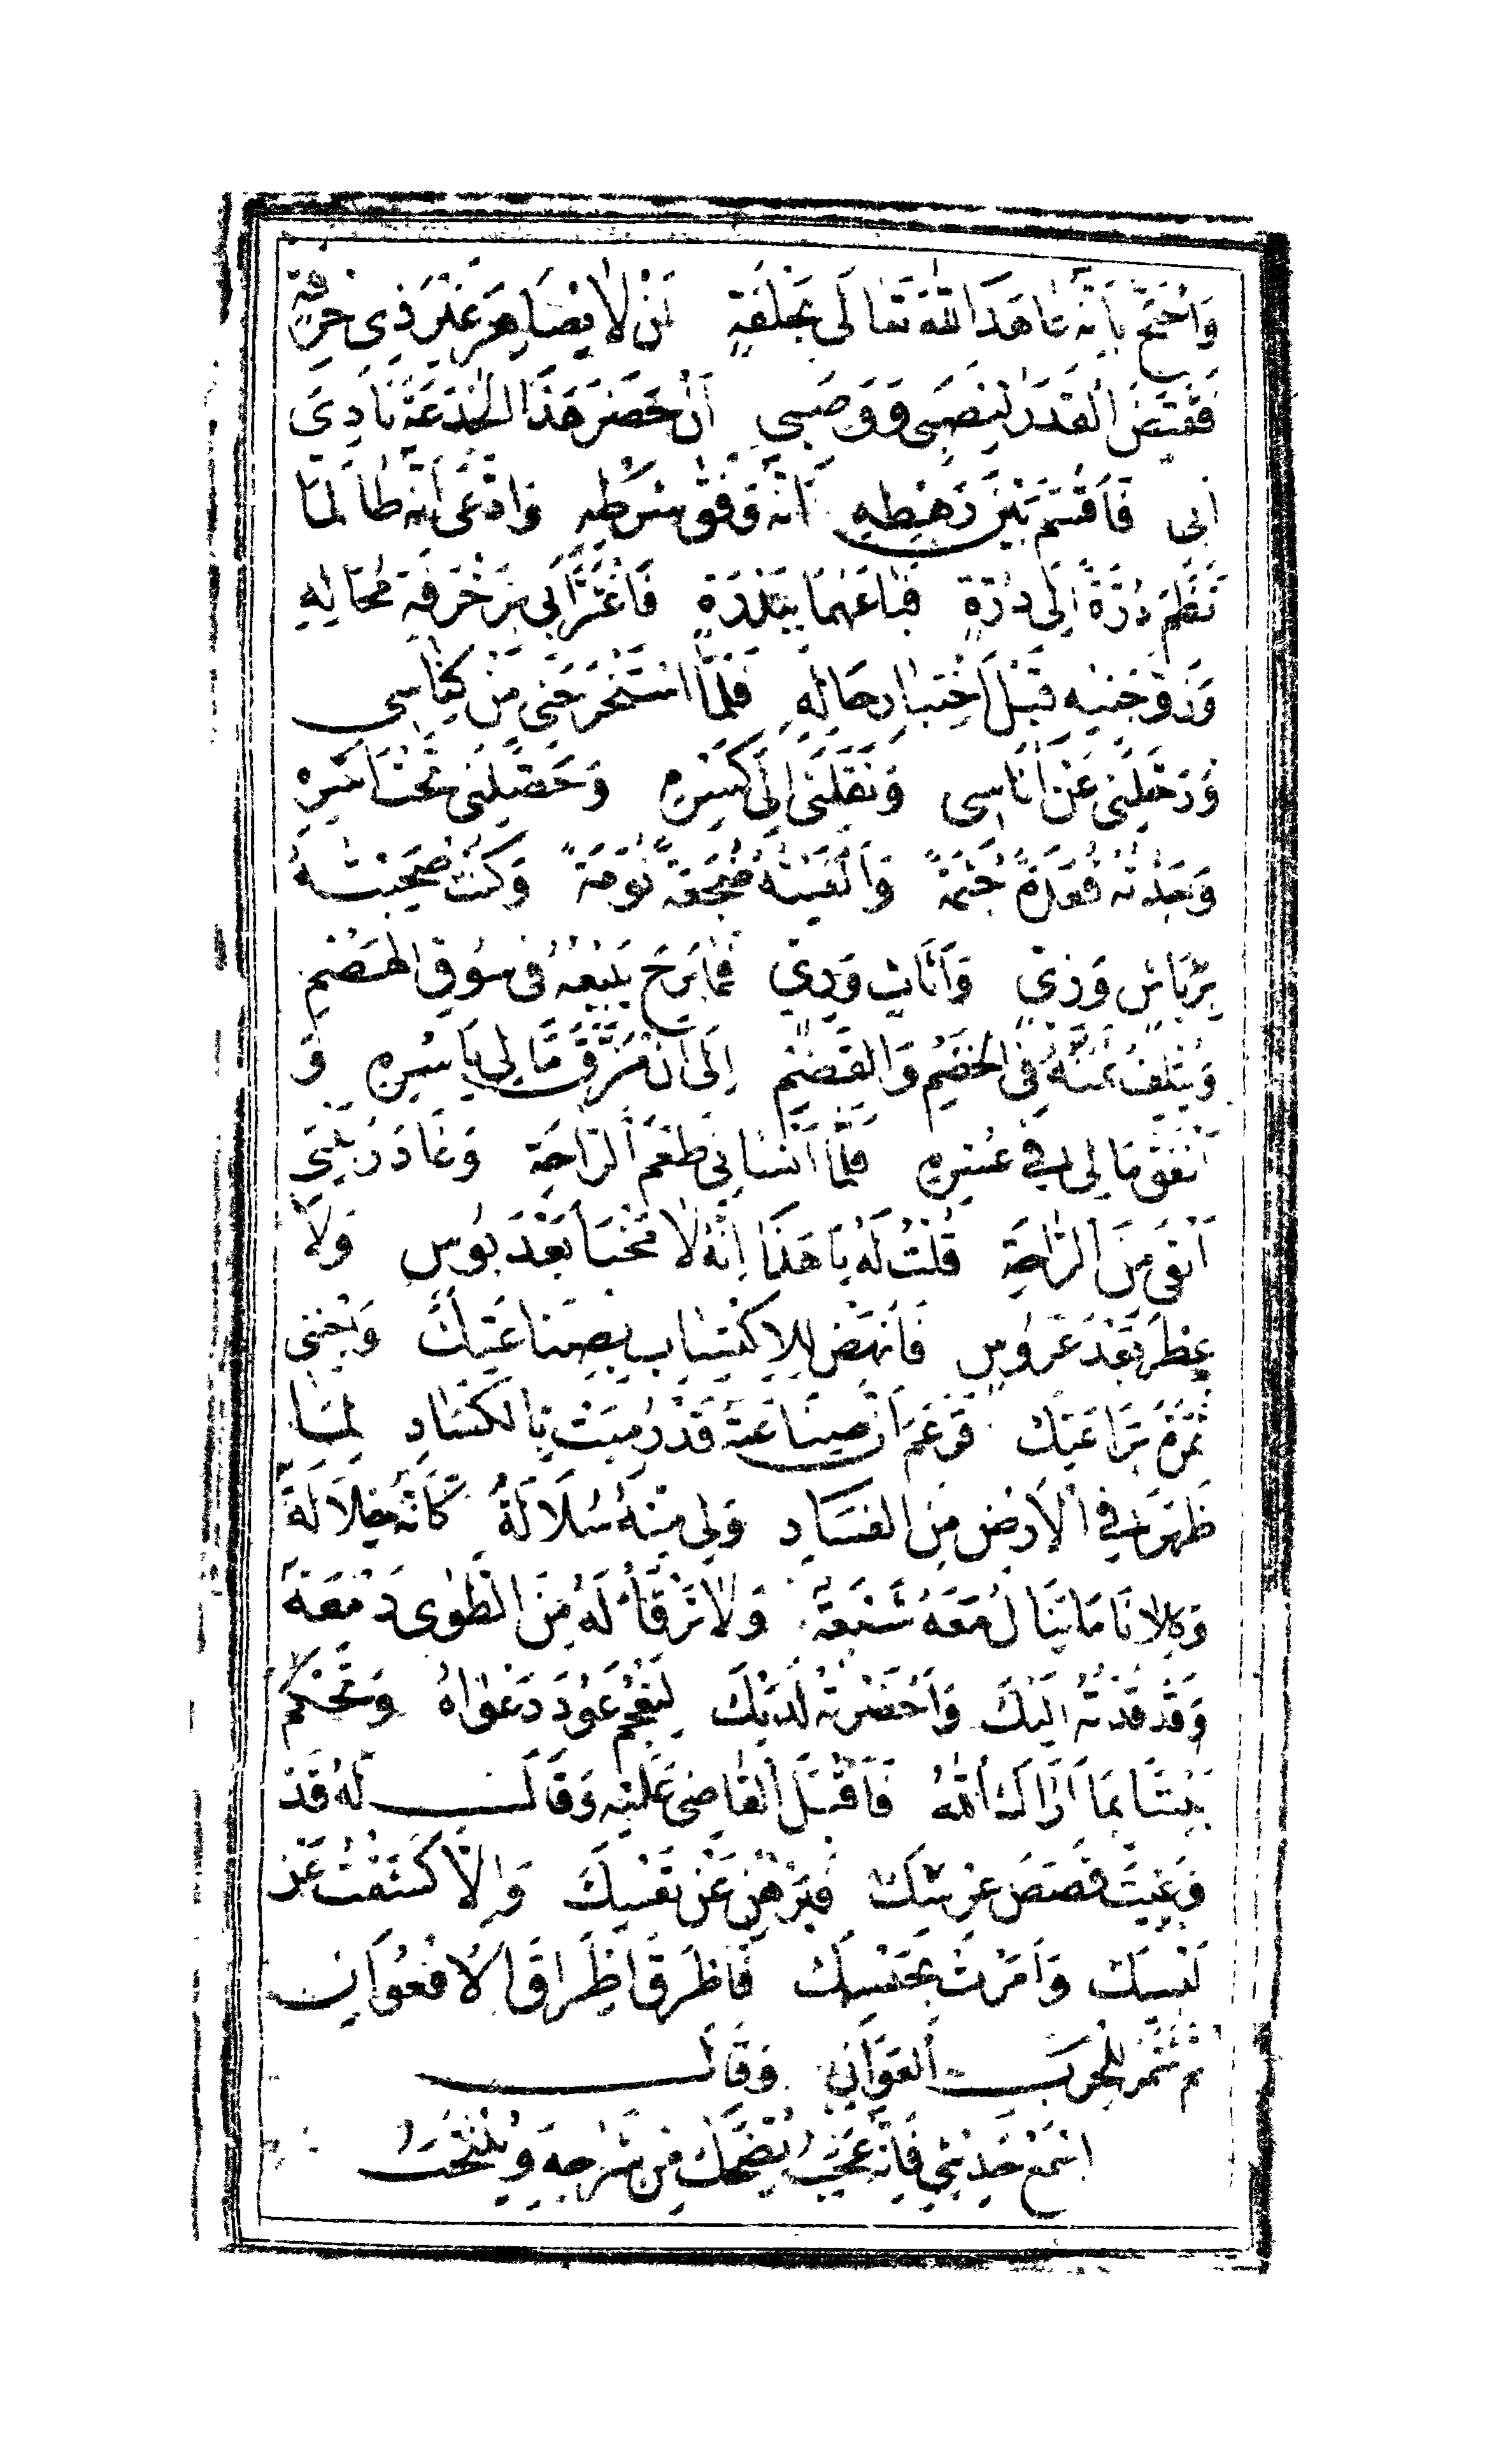 وَاحْتَجَّ بِأَنَّهُ عَاهَدَ اللّٰهَ تَعَالَى بِحَلْفَةٍ أَنْ لَا يُصَاهِرَ غَيْرَ ذِي حِرْفَةٍ
فَقَيَّضَ الْقَدَرُ لِنَصَبِي وَوَصَبِي أَنْ حَضَرَ هَذَا الْخُدَعَةُ نَادِيَ
أَبِي فَأَقْسَمَ بَيْنَ رَهْطِهِ أَنَّهُ وَفْقُ شَرْطِهِ وَادَّعَى أَنَّهُ طَالَمَا
نَظَمَ دُرَّةً إِلَى دُرَّةٍ فَبَاعَهُمَا بِبَدْرَةٍ فَاغْتَرَّ أَبِي بِزَخْرَفَةِ مُحَالِهِ
وَزَوَّجَنِيهِ قَبْلَ اخْتِبَارِ حَالِهِ فَلَمَّا اسْتَخْرَجَنِي مِنْ كِنَاسِي
وَرَحَّلَنِي عَنْ أُنَاسِي وَنَقَلَنِي إِلَى كَسْرِهِ وَحَصَّلَنِي تَحْتَ أَسْرِهِ
وَجَدْتُهُ قُعَدَةً جُثَمَةً وَأَلْفَيْتُهُ ضُجَعَةً نُوَمَةً وَكُنْتُ صَحِبْتُهُ
بِرِيَاشٍ وَزِيٍّ وَأَثَاثٍ وَرِيٍّ فَمَا بَرِحَ يَبِيعُهُ فِي سُوقِ الْهَضْمِ
وَيُتْلِفُ ثَمَنَهُ فِي الْخَضْمِ وَالْقَضْمِ إِلَى أَنْ مَزَّقَ مَا لِي بِأَسْرِهِ وَ
أَنْفَقَ مَالِي فِي عُسْرِهِ فَلَمَّا أَنْسَانِي طَعْمَ الرَّاحَةِ وَغَادَرَ بَيْتِي
أَنْقَى مِنَ الرَّاحَةِ قُلْتُ لَهُ يَا هَذَا إِنَّهُ لَا مَخْبَأَ بَعْدَ بُوسٍ وَلَا
عِطْرَ بَعْدَ عَرُوسٍ فَانْهَضْ لِلِاكْتِسَابِ بِصِنَاعَتِكَ وَاجْنِنِي
ثَمَرَةَ بَرَاعَتِكَ فَزَعَمَ أَنَّ صِنَاعَتَهُ قَدْ رُمِيَتْ بِالْكَسَادِ لِمَا
ظَهَرَ فِي الْأَرْضِ مِنَ الْفَسَادِ وَلِي مِنْهُ سُلَالَةٌ كَأَنَّهُ خِلَالَةٌ
وَكِلَانَا مَا يَنَالُ مَعَهُ شُبْعَةً وَلَا تَرْقَأُ لَهُ مِنَ الطَّوَى دَمْعَةٌ
وَقَدْ قُدْتُهُ إِلَيْكَ وَأَحْضَرْتُهُ لَدَيْكَ لِتَعْجُمَ عُودَ دَعْوَاهُ وَتَحْكُمَ
بَيْنَنَا بِمَا أَرَاكَ اللّٰهُ فَأَقْبَلَ الْقَاضِي عَلَيْهِ وَقَالَ لَهُ قَدْ
وَعَيْتَ قَصَصَ عِرْسِكَ فَبَرْهِنْ عَنْ نَفْسِكَ وَإِلَّا كَشَفْتُ عَنْ
لَبْسِكَ وَأَمَرْتُ بِحَبْسِكَ فَأَطْرَقَ إِطْرَاقَ الْأُفْعُوَانِ
ثُمَّ شَمَّرَ لِلْحَرْبِ الْعَوَانِ وَقَالَ
اسْمَعْ حَدِيثِي فَإِنَّهُ عَجَبُ يُضْحَكُ مِنْ شَرْحِهِ وَيُنْتَحَبُ